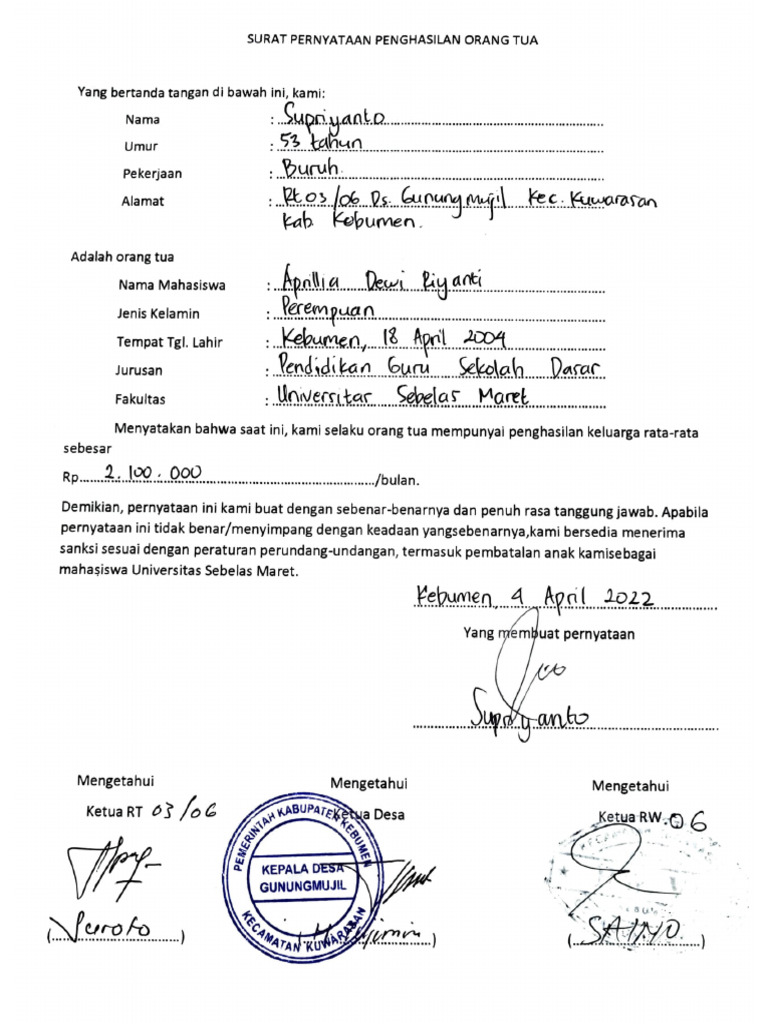 SURAT PERNYATAAN PENGHASILAN ORANG TUA
Yang bertanda tangan di bawah ini, kami:
Nama : Supriyanto
Umur : 53 tahun
Pekerjaan : Buruh.
Alamat : Rt 03/06 Ds. Gunungmujil Kec. Kuwarasan
Kab. Kebumen.
Adalah orang tua
Nama Mahasiswa : Aprillia Dewi Riyanti
Jenis Kelamin : Perempuan
Tempat Tgl. Lahir : Kebumen, 18 April 2004
Jurusan : Pendidikan Guru Sekolah Dasar
Fakultas : Universitas Sebelas Maret
Menyatakan bahwa saat ini, kami selaku orang tua mempunyai penghasilan keluarga rata-rata
sebesar
Rp. 2.100.000 /bulan.
Demikian, pernyataan ini kami buat dengan sebenar-benarnya dan penuh rasa tanggung jawab. Apabila
pernyataan ini tidak benar/menyimpang dengan keadaan yangsebenarnya,kami bersedia menerima
sanksi sesuai dengan peraturan perundang-undangan, termasuk pembatalan anak kamisebagai
mahasiswa Universitas Sebelas Maret.
Kebumen, 4 April 2022
Yang membuat pernyataan
Supriyanto
Mengetahui Mengetahui Mengetahui
Ketua RT 03/06 Ketua Desa Ketua RW. 06
PEMERINTAH KABUPATEN KEBUMEN
KEPALA DESA
GUNUNGMUJIL
KECAMATAN KUWARASAN
(Suroto)